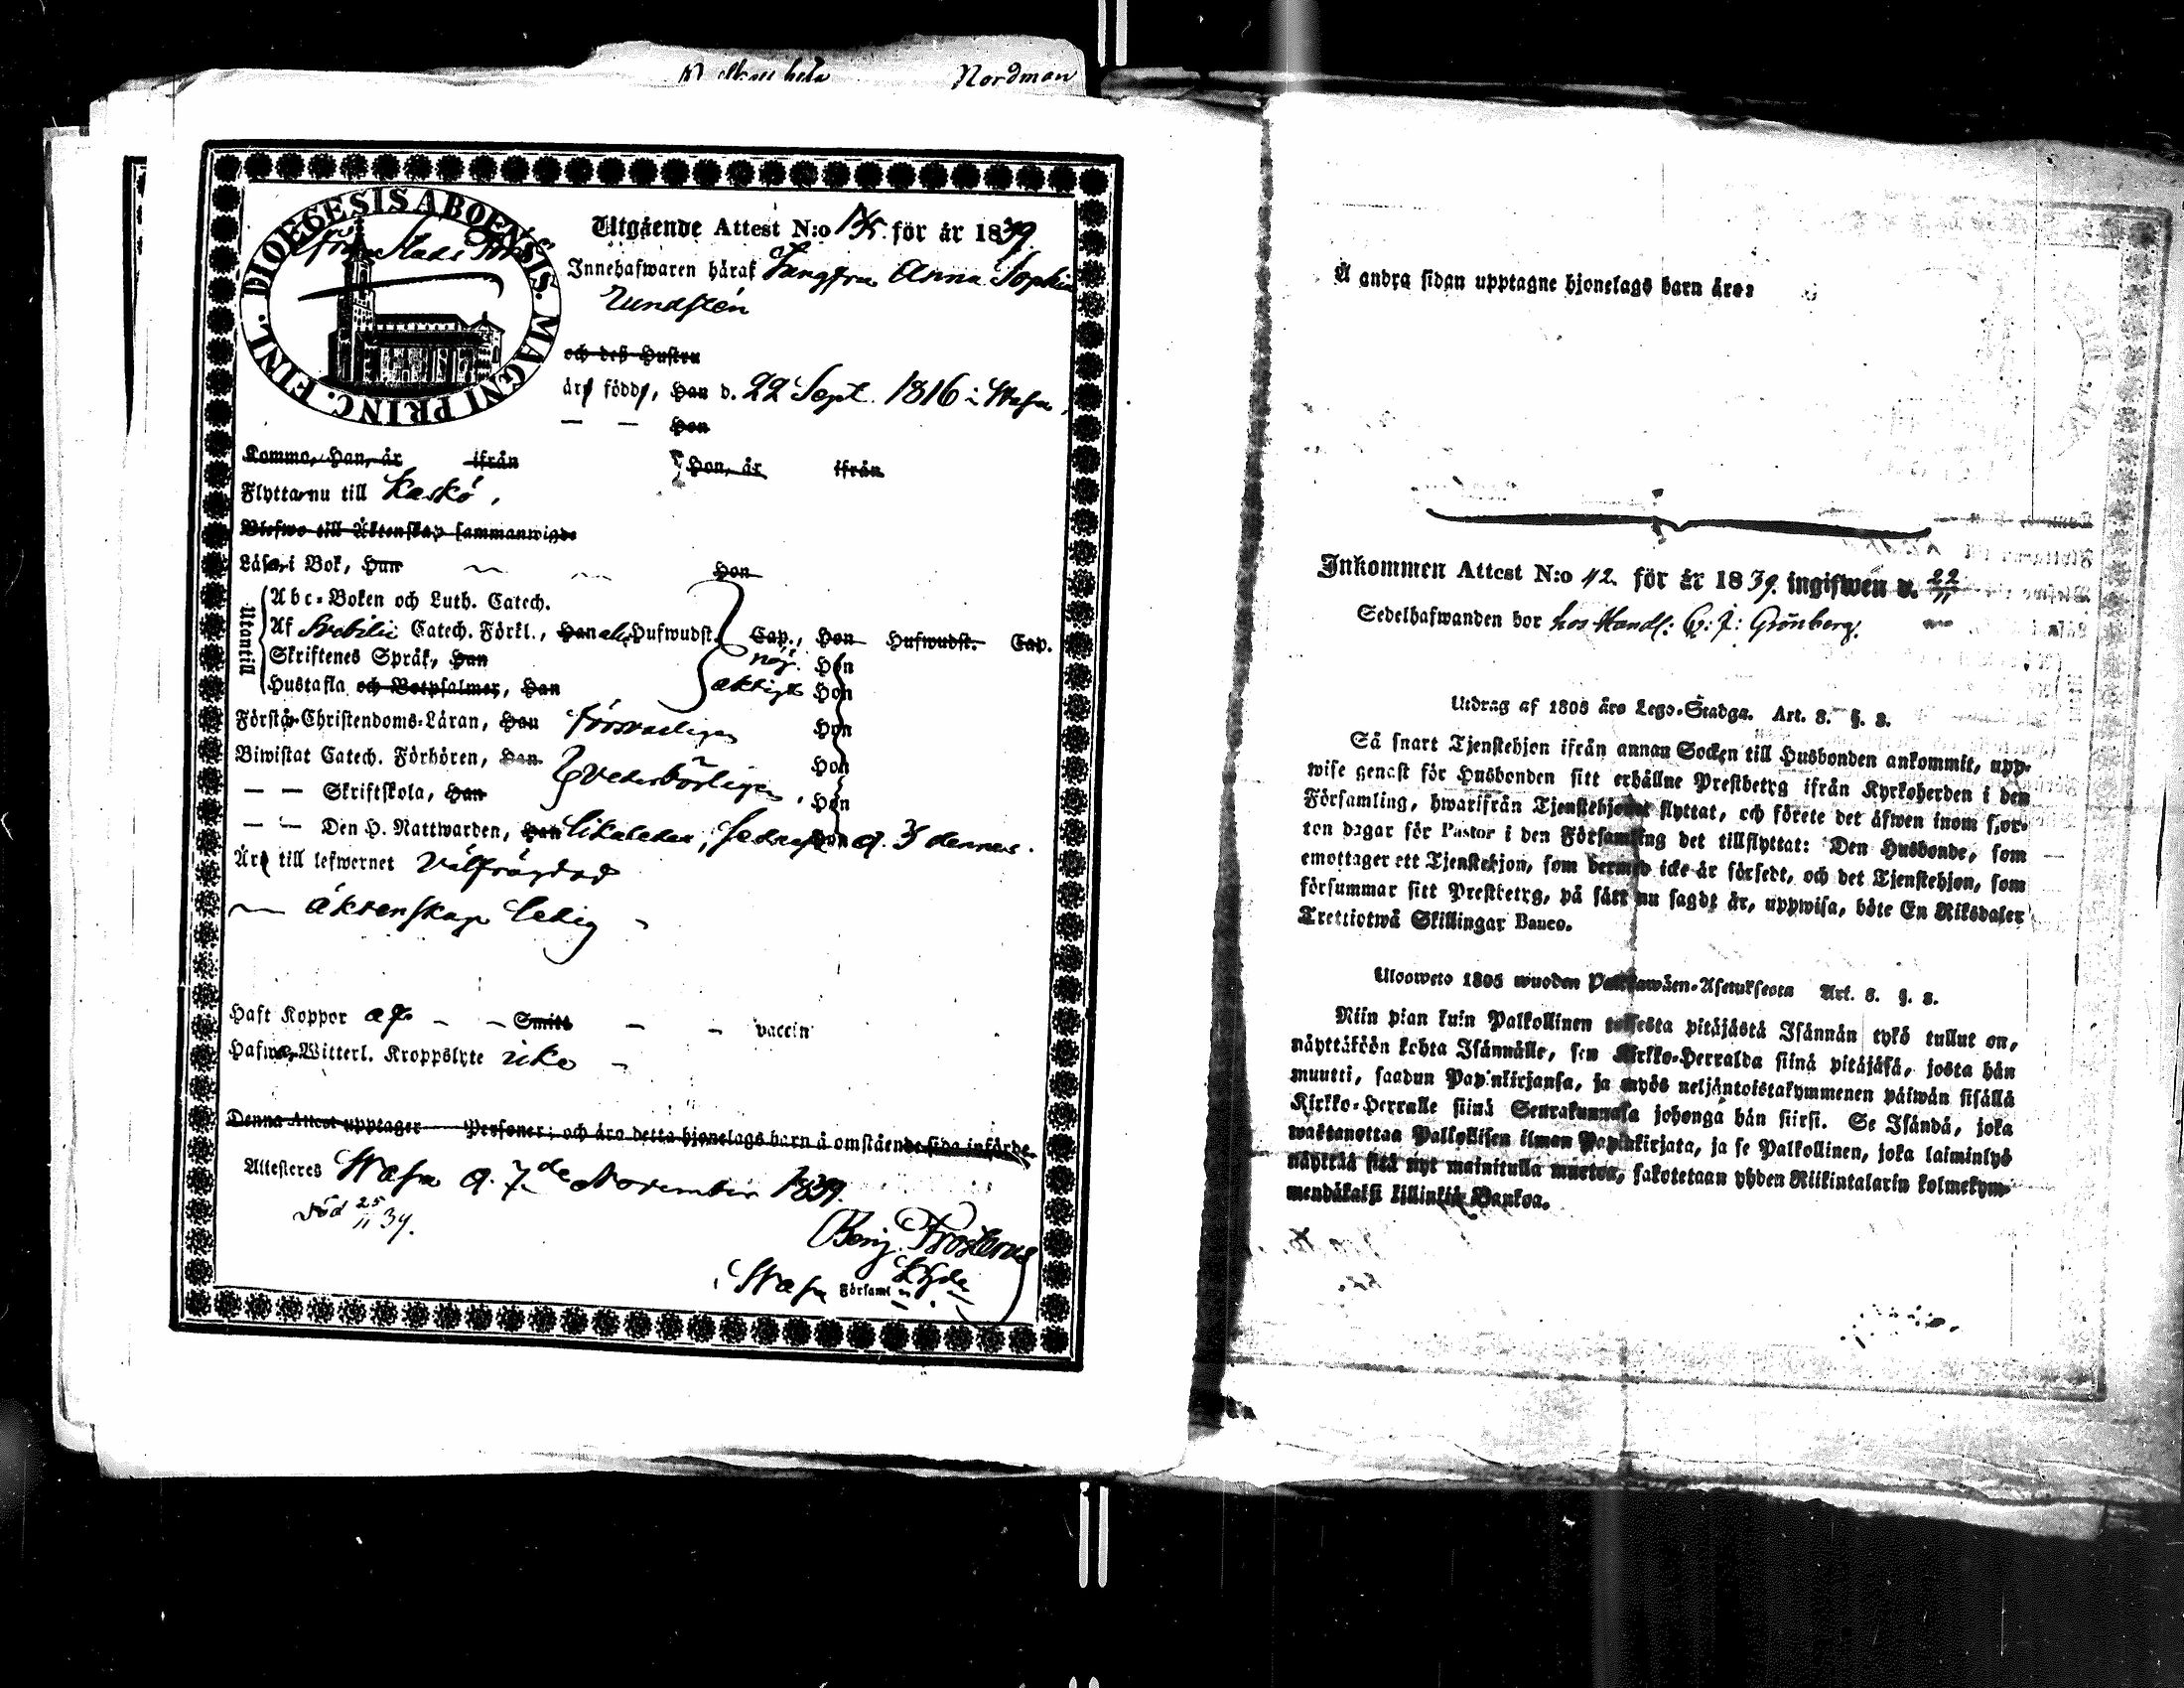 Nordman
DIOECESIS ABOENSIS. MAGNI PRINC. FINL.
Utgående Attest N:o för år 1839.
Innehafwaren häraf Jungfru Anna Sophia
Lundstén
och deß Hustru
äro födde, Han d. 22 Sept. 1816 i Wasa,
— — Hon
Kommo, Han, år ifrån Hon, år ifrån
Flytta nu till Kaskö,
Blefwo till Äktenskap sammanwigde
Läsa i Bok, Han Hon
Utantill
Abc-Boken och Luth. Catech.
Af Svebilii Catech. Förkl., Han Hufwudst. Cap., Hon Hufwudst. Cap.
Skriftenes Språk, Han nöj- Hon
Hustafla och Botpsalmer, Han aktigt Hon
Förstå Christendoms-Läran, Han försvarligen Hon
Biwistat Catech. Förhören, Han Hon
— — Skriftskola, Han vederbörligen, Hon
— — Den H. Nattwarden, Han likaledes, sednast d. 3 dennes.
Äro till lefwernet välfrägdad
— äktenskap ledig —
Haft Koppor — — Smitt — — vaccin
Hafwa Witterl. Kroppslyte icke —
Denna Attest upptager Personer; och äro detta hjonelags barn å omstående sida införde.
Attesteres Wasa d. 7de November 1839.
25/11 39.
Benj. Frosterus
Wasa Församl
Å andra sidan upptagne hjonelags barn äro:
Inkommen Attest N:o 42. för år 1839. ingifwen d. 22/11
Sedelhafwanden bor hos Handl: G: J: Grönberg.
Utdrag af 1805 års Lego-Stadga. Art. 8. §. 8.
Så snart Tjenstehjon ifrån annan Socken till Husbonden ankommit, upp-
wise genast för Husbonden sitt erhållne Prestbetyg ifrån Kyrkoherden i den
Församling, hwarifrån Tjenstehjonet flyttat, och förete det äfwen inom fjor-
ton dagar för Pastor i den Församling det tillflyttat: Den Husbonde, som
emottager ett Tjenstehjon, som dermed icke är försedt, och det Tjenstehjon, som
försummar sitt Prestbetyg, på sätt nu sagdt är, uppwisa, böte En Riksdaler
Trettiotwå Skillingar Banco.
Uloosweto 1805 wuoden Palkkawäen-Asetuksesta Art. 8. §. 8.
Niin pian kuin Palkollinen toisesta pitäjästä Isännän tykö tullut on,
näyttäköön kohta Isännälle, sen Kirkko-Herralda siinä pitäjäsä, josta hän
muutti, saadun Papinkirjansa, ja myös neljäntoistakymmenen päiwän sisällä
Kirkko-Herralle siinä Seurakunnasa johonga hän siirsi. Se Isändä, joka
wastanottaa Palkollisen ilman Papinkirjata, ja se Palkollinen, joka laiminlyö
näyttää sitä nyt mainitulla muotoa, sakotetaan yhden Riikintalarin kolmekym-
mendäkaksi killinkiä Bankoa.